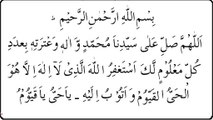 بِسْمِ اللّٰهِ الرَّحْمٰنِ الرَّحِيْمِ ؕ
اَللّٰهُمَّ صَلِّ عَلٰى سَيِّدِنَا مُحَمَّدٍ وَّاٰلِهٖ وَعِتْرَتِهٖ بِعَدَدِ
كُلِّ مَعْلُوْمٍ لَّكَ اَسْتَغْفِرُ اللّٰهَ الَّذِيْ لَآ اِلٰهَ اِلَّا هُوَ
الْحَيُّ الْقَيُّوْمُ وَاَتُوْبُ اِلَيْهِ ؕ يَاحَيُّ يَاقَيُّوْمُ